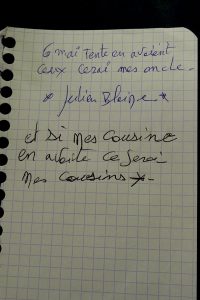 6 mai tente en avaient
ceux cerai mes oncle.
* Julien Blaine *
et si mes cousine
en avaite ce serai
mes cousins *.